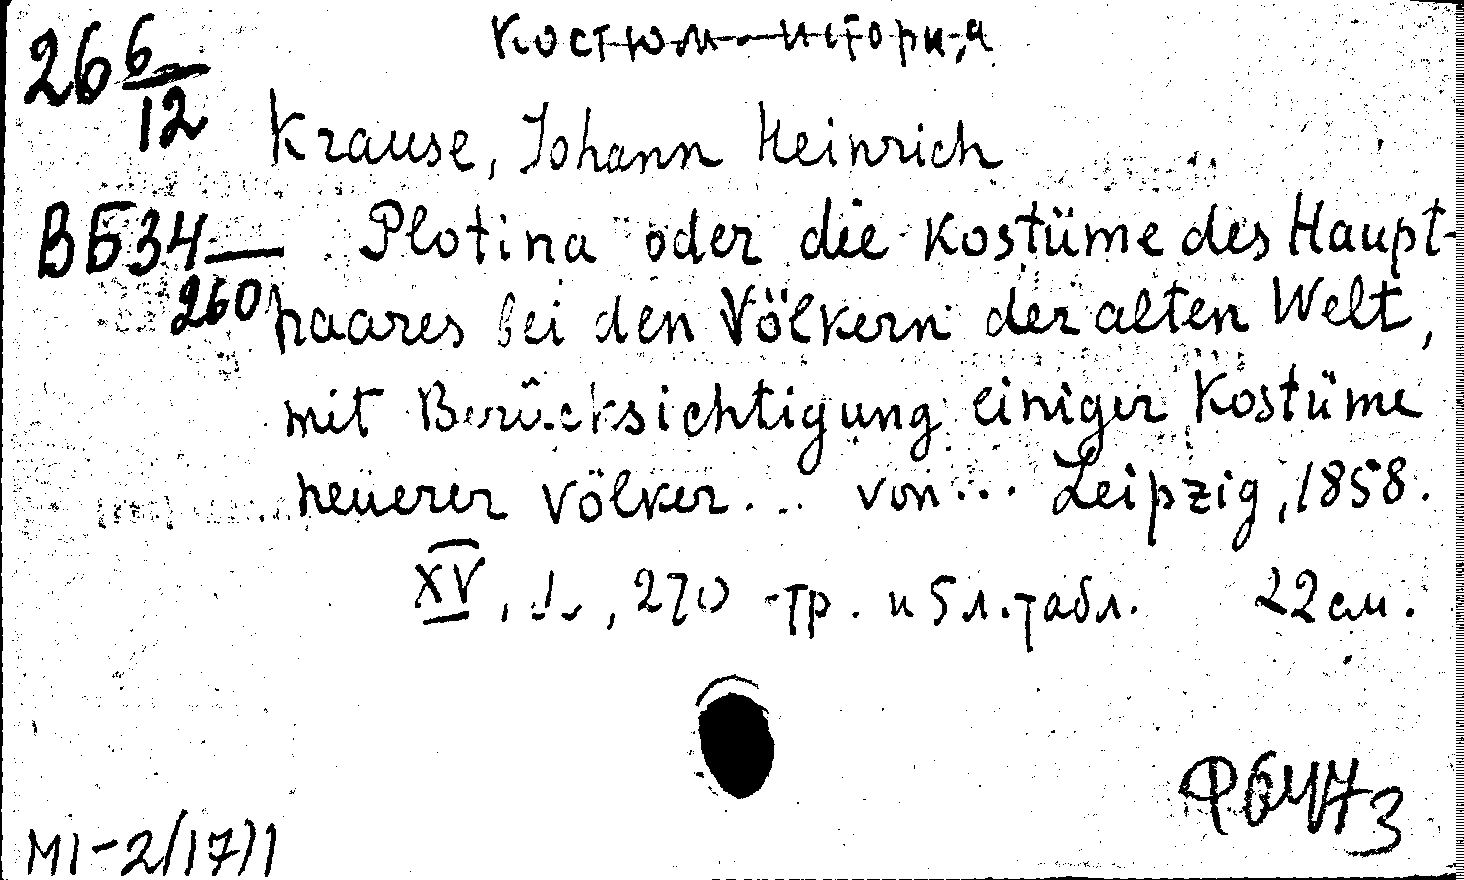 Костюм-история
26 6/12
Krause, Johann Heinrich
ВБ34/260
Plotina oder die Kostüme des Haupt-
haares bei den Völkern der alten Welt,
mit Berücksichtigung einiger Kostüme
neuerer Völker... von... Leipzig, 1858.
XV, 270 стр. и 5 л. табл. 22 см.
МI-2/17)1